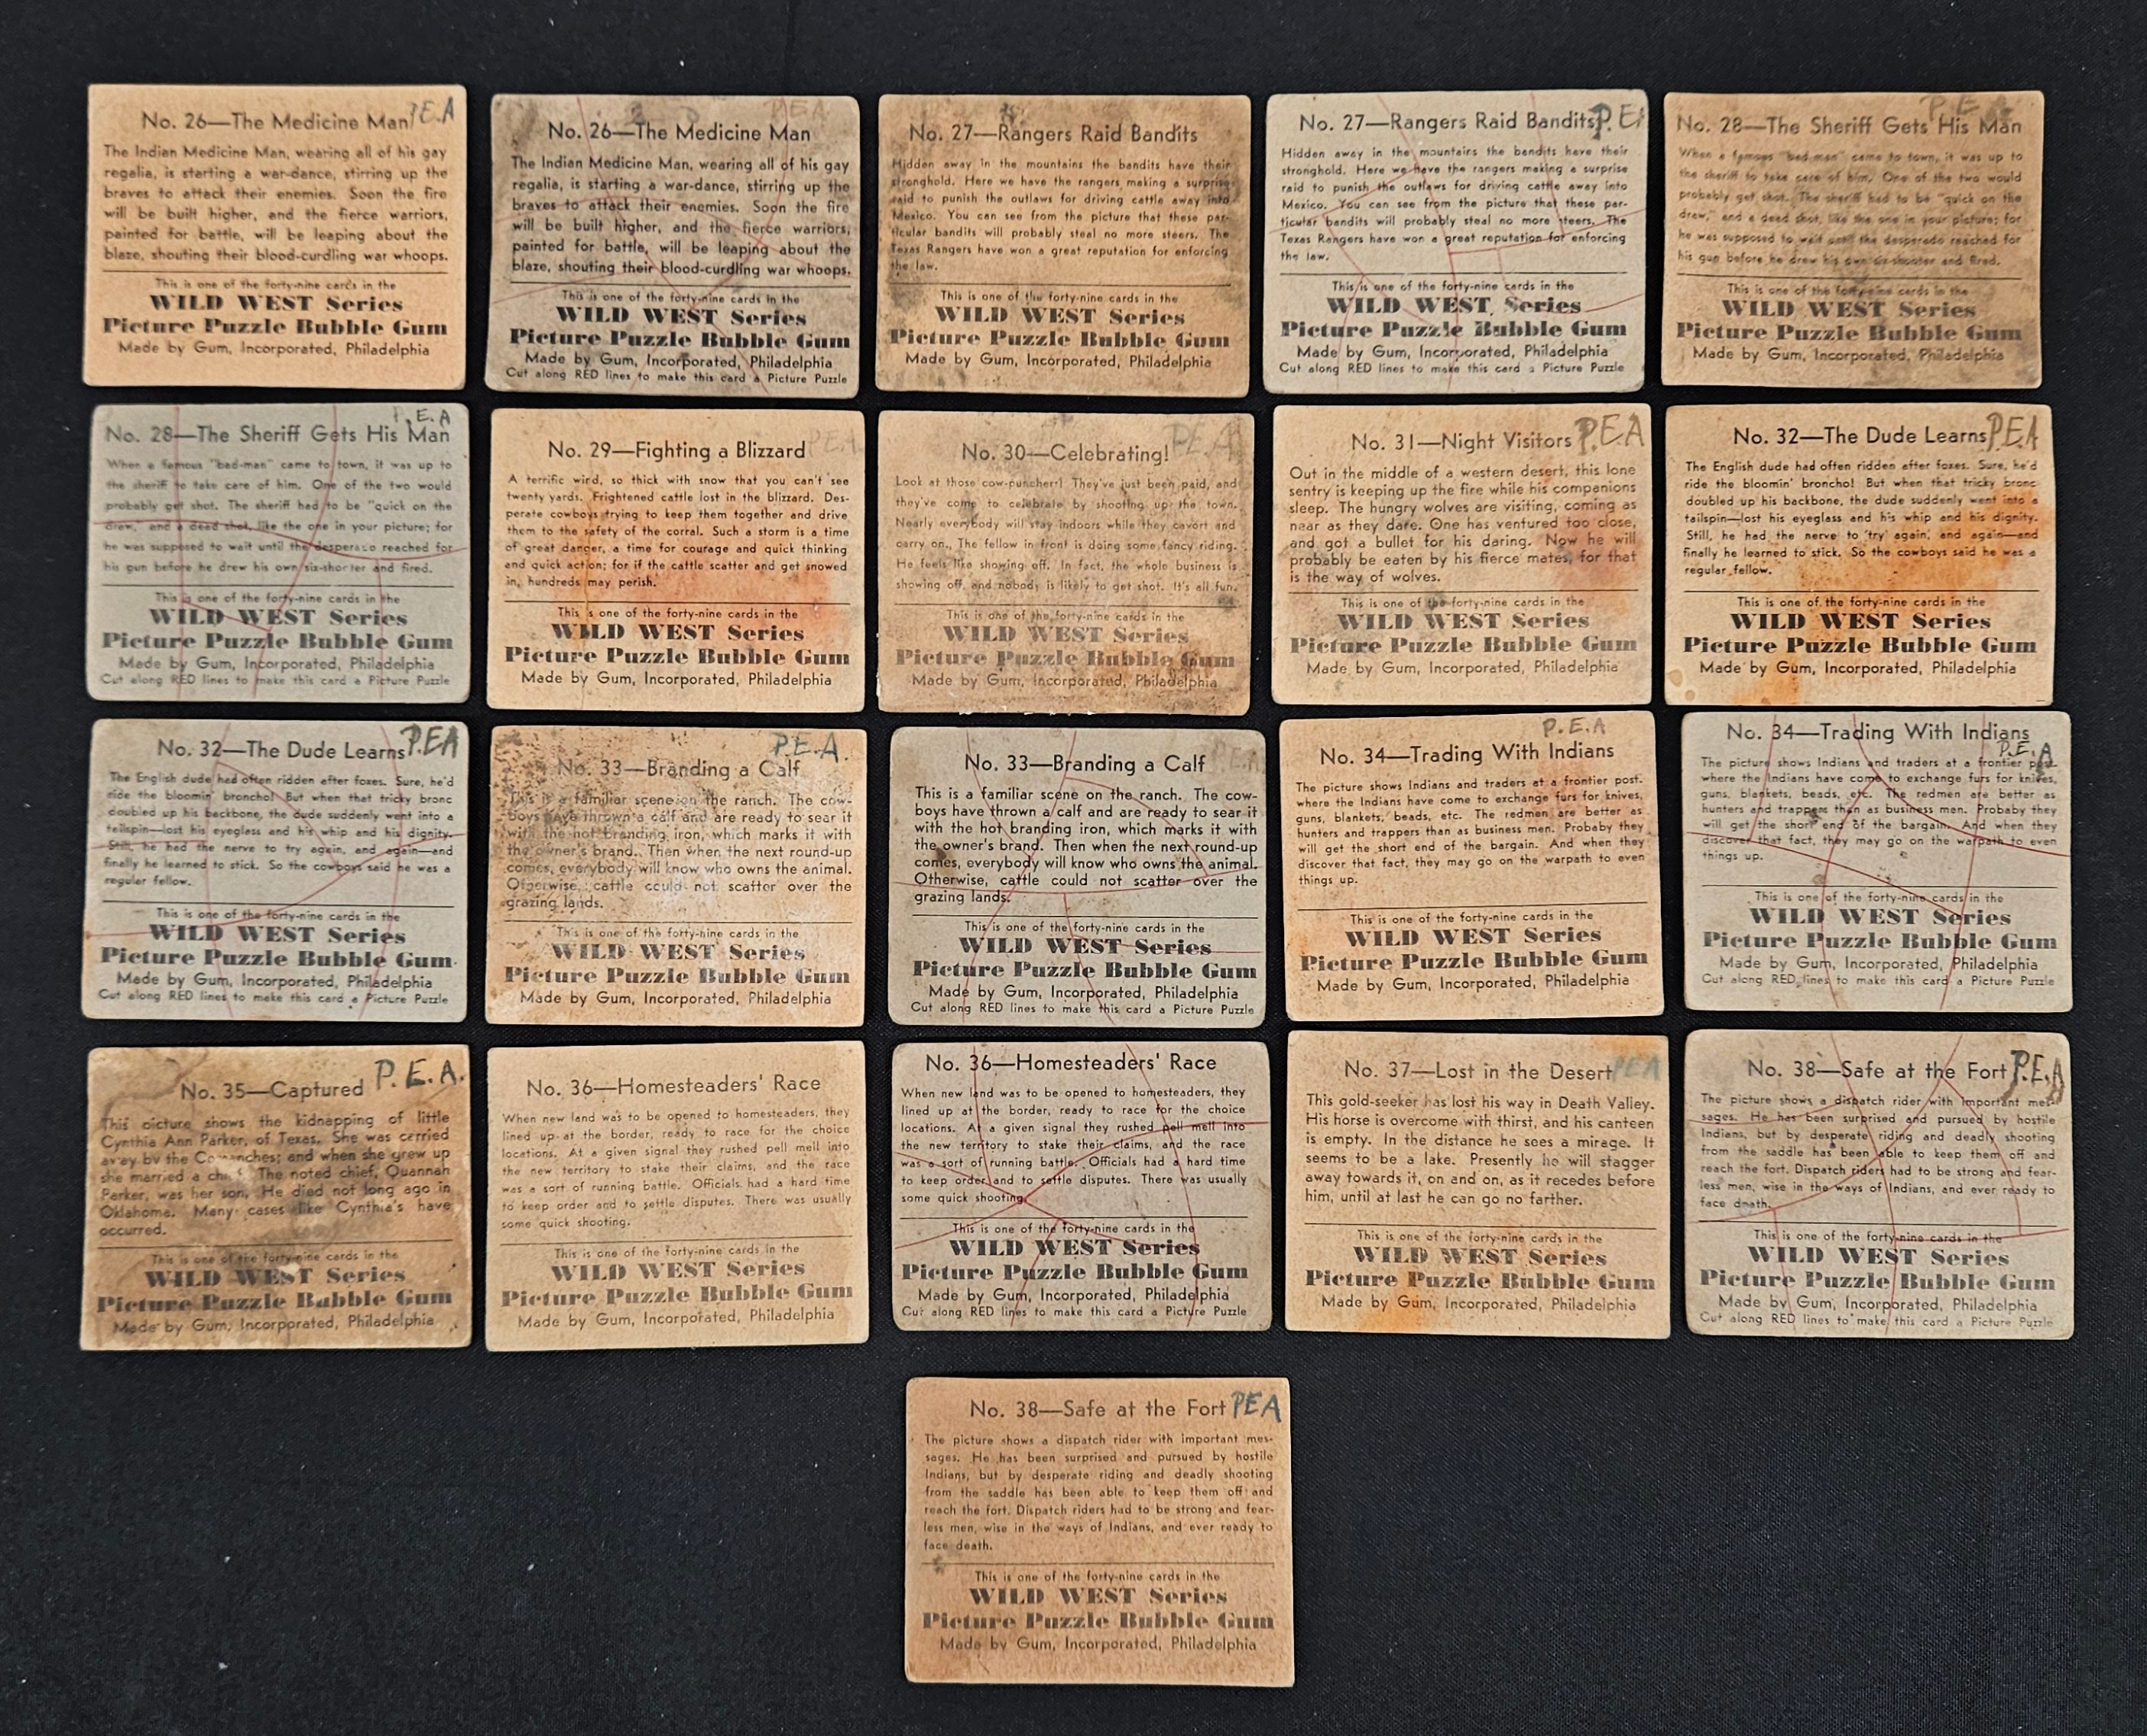 No. 26—The Medicine Man P.E.A
The Indian Medicine Man, wearing all of his gay
regalia, is starting a war-dance, stirring up the
braves to attack their enemies. Soon the fire
will be built higher, and the fierce warriors,
painted for battle, will be leaping about the
blaze, shouting their blood-curdling war whoops.
This is one of the forty-nine cards in the
WILD WEST Series
Picture Puzzle Bubble Gum
Made by Gum, Incorporated, Philadelphia
PEA
No. 26—The Medicine Man
The Indian Medicine Man, wearing all of his gay
regalia, is starting a war-dance, stirring up the
braves to attack their enemies. Soon the fire
will be built higher, and the fierce warriors,
painted for battle, will be leaping about the
blaze, shouting their blood-curdling war whoops.
This is one of the forty-nine cards in the
WILD WEST Series
Picture Puzzle Bubble Gum
Made by Gum, Incorporated, Philadelphia
Cut along RED lines to make this card a Picture Puzzle
No. 27—Rangers Raid Bandits
Hidden away in the mountains the bandits have their
stronghold. Here we have the rangers making a surprise
raid to punish the outlaws for driving cattle away into
Mexico. You can see from the picture that these par-
ticular bandits will probably steal no more steers. The
Texas Rangers have won a great reputation for enforcing
the law.
This is one of the forty-nine cards in the
WILD WEST Series
Picture Puzzle Bubble Gum
Made by Gum, Incorporated, Philadelphia
No. 27—Rangers Raid Bandits P.E
Hidden away in the mountains the bandits have their
stronghold. Here we have the rangers making a surprise
raid to punish the outlaws for driving cattle away into
Mexico. You can see from the picture that these par-
ticular bandits will probably steal no more steers. The
Texas Rangers have won a great reputation for enforcing
the law.
This is one of the forty-nine cards in the
WILD WEST Series
Picture Puzzle Bubble Gum
Made by Gum, Incorporated, Philadelphia
Cut along RED lines to make this card a Picture Puzzle
P.E.A
No. 28—The Sheriff Gets His Man
When a famous "bad-man" came to town, it was up to
the sheriff to take care of him. One of the two would
probably get shot. The sheriff had to be "quick on the
draw," and a dead shot, like the one in your picture; for
he was supposed to wait until the desperado reached for
his gun before he drew his own six-shooter and fired.
This is one of the forty-nine cards in the
WILD WEST Series
Picture Puzzle Bubble Gum
Made by Gum, Incorporated, Philadelphia
P.E.A
No. 28—The Sheriff Gets His Man
When a famous "bad-man" came to town, it was up to
the sheriff to take care of him. One of the two would
probably get shot. The sheriff had to be "quick on the
draw, and a dead shot, like the one in your picture; for
he was supposed to wait until the desperado reached for
his gun before he drew his own six-shooter and fired.
This is one of the forty-nine cards in the
WILD WEST Series
Picture Puzzle Bubble Gum
Made by Gum, Incorporated, Philadelphia
Cut along RED lines to make this card a Picture Puzzle
No. 29—Fighting a Blizzard PEA
A terrific wird, so thick with snow that you can't see
twenty yards. Frightened cattle lost in the blizzard. Des-
perate cowboys trying to keep them together and drive
them to the safety of the corral. Such a storm is a time
of great danger, a time for courage and quick thinking
and quick action; for if the cattle scatter and get snowed
in, hundreds may perish.
This is one of the forty-nine cards in the
WILD WEST Series
Picture Puzzle Bubble Gum
Made by Gum, Incorporated, Philadelphia
No. 30—Celebrating! PEA
Look at those cow-punchers! They've just been paid, and
they've come to celebrate by shooting up the town.
Nearly everybody will stay indoors while they cavort and
carry on. The fellow in front is doing some fancy riding.
He feels like showing off. In fact, the whole business is
showing off, and nobody is likely to get shot. It's all fun.
This is one of the forty-nine cards in the
WILD WEST Series
Picture Puzzle Bubble Gum
Made by Gum, Incorporated, Philadelphia
No. 31—Night Visitors P.EA
Out in the middle of a western desert, this lone
sentry is keeping up the fire while his companions
sleep. The hungry wolves are visiting, coming as
near as they dare. One has ventured too close,
and got a bullet for his daring. Now he will
probably be eaten by his fierce mates, for that
is the way of wolves.
This is one of the forty-nine cards in the
WILD WEST Series
Picture Puzzle Bubble Gum
Made by Gum, Incorporated, Philadelphia
No. 32—The Dude Learns PEA
The English dude had often ridden after foxes. Sure, he'd
ride the bloomin' broncho! But when that tricky bronc
doubled up his backbone, the dude suddenly went into a
tailspin—lost his eyeglass and his whip and his dignity.
Still, he had the nerve to try again, and again—and
finally he learned to stick. So the cowboys said he was a
regular fellow.
This is one of the forty-nine cards in the
WILD WEST Series
Picture Puzzle Bubble Gum
Made by Gum, Incorporated, Philadelphia
No. 32—The Dude Learns P.EA
The English dude had often ridden after foxes. Sure, he'd
ride the bloomin' broncho! But when that tricky bronc
doubled up his backbone, the dude suddenly went into a
tailspin—lost his eyeglass and his whip and his dignity.
Still, he had the nerve to try again, and again—and
finally he learned to stick. So the cowboys said he was a
regular fellow.
This is one of the forty-nine cards in the
WILD WEST Series
Picture Puzzle Bubble Gum
Made by Gum, Incorporated, Philadelphia
Cut along RED lines to make this card a Picture Puzzle
P.E.A.
No. 33—Branding a Calf
This is a familiar scene on the ranch. The cow-
boys have thrown a calf and are ready to sear it
with the hot branding iron, which marks it with
the owner's brand. Then when the next round-up
comes, everybody will know who owns the animal.
Otherwise, cattle could not scatter over the
grazing lands.
This is one of the forty-nine cards in the
WILD WEST Series
Picture Puzzle Bubble Gum
Made by Gum, Incorporated, Philadelphia
No. 33—Branding a Calf
This is a familiar scene on the ranch. The cow-
boys have thrown a calf and are ready to sear it
with the hot branding iron, which marks it with
the owner's brand. Then when the next round-up
comes, everybody will know who owns the animal.
Otherwise, cattle could not scatter over the
grazing lands.
This is one of the forty-nine cards in the
WILD WEST Series
Picture Puzzle Bubble Gum
Made by Gum, Incorporated, Philadelphia
Cut along RED lines to make this card a Picture Puzzle
P.E.A
No. 34—Trading With Indians
The picture shows Indians and traders at a frontier post.
where the Indians have come to exchange furs for knives,
guns, blankets, beads, etc. The redmen are better as
hunters and trappers than as business men. Probaby they
will get the short end of the bargain. And when they
discover that fact, they may go on the warpath to even
things up.
This is one of the forty-nine cards in the
WILD WEST Series
Picture Puzzle Bubble Gum
Made by Gum, Incorporated, Philadelphia
No. 34—Trading With Indians
P.E.A
The picture shows Indians and traders at a frontier post.
where the Indians have come to exchange furs for knives,
guns, blankets, beads, etc. The redmen are better as
hunters and trappers than as business men. Probaby they
will get the short end of the bargain. And when they
discover that fact, they may go on the warpath to even
things up.
This is one of the forty-nine cards in the
WILD WEST Series
Picture Puzzle Bubble Gum
Made by Gum, Incorporated, Philadelphia
Cut along RED lines to make this card a Picture Puzzle
No. 35—Captured P.E.A.
This picture shows the kidnapping of little
Cynthia Ann Parker, of Texas. She was carried
away by the Comanches; and when she grew up
she married a The noted chief, Quannah
Parker, was her son. He died not long ago in
Oklahoma. Many cases like Cynthia's have
occurred.
This is one of the forty-nine cards in the
WILD WEST Series
Picture Puzzle Bubble Gum
Made by Gum, Incorporated, Philadelphia
No. 36—Homesteaders' Race
When new land was to be opened to homesteaders, they
lined up at the border, ready to race for the choice
locations. At a given signal they rushed pell mell into
the new territory to stake their claims, and the race
was a sort of running battle. Officials had a hard time
to keep order and to settle disputes. There was usually
some quick shooting.
This is one of the forty-nine cards in the
WILD WEST Series
Picture Puzzle Bubble Gum
Made by Gum, Incorporated, Philadelphia
No. 36—Homesteaders' Race
When new land was to be opened to homesteaders, they
lined up at the border, ready to race for the choice
locations. At a given signal they rushed pell mell into
the new territory to stake their claims, and the race
was a sort of running battle. Officials had a hard time
to keep order and to settle disputes. There was usually
some quick shooting.
This is one of the forty-nine cards in the
WILD WEST Series
Picture Puzzle Bubble Gum
Made by Gum, Incorporated, Philadelphia
Cut along RED lines to make this card a Picture Puzzle
No. 37—Lost in the Desert PEA
This gold-seeker has lost his way in Death Valley.
His horse is overcome with thirst, and his canteen
is empty. In the distance he sees a mirage. It
seems to be a lake. Presently he will stagger
away towards it, on and on, as it recedes before
him, until at last he can go no farther.
This is one of the forty-nine cards in the
WILD WEST Series
Picture Puzzle Bubble Gum
Made by Gum, Incorporated, Philadelphia
No. 38—Safe at the Fort P.E.A
The picture shows a dispatch rider with important mes-
sages. He has been surprised and pursued by hostile
Indians, but by desperate riding and deadly shooting
from the saddle has been able to keep them off and
reach the fort. Dispatch riders had to be strong and fear-
less men, wise in the ways of Indians, and ever ready to
face death.
This is one of the forty-nine cards in the
WILD WEST Series
Picture Puzzle Bubble Gum
Made by Gum, Incorporated, Philadelphia
Cut along RED lines to make this card a Picture Puzzle
No. 38—Safe at the Fort PEA
The picture shows a dispatch rider with important mes-
sages. He has been surprised and pursued by hostile
Indians, but by desperate riding and deadly shooting
from the saddle has been able to keep them off and
reach the fort. Dispatch riders had to be strong and fear-
less men, wise in the ways of Indians, and ever ready to
face death.
This is one of the forty-nine cards in the
WILD WEST Series
Picture Puzzle Bubble Gum
Made by Gum, Incorporated, Philadelphia